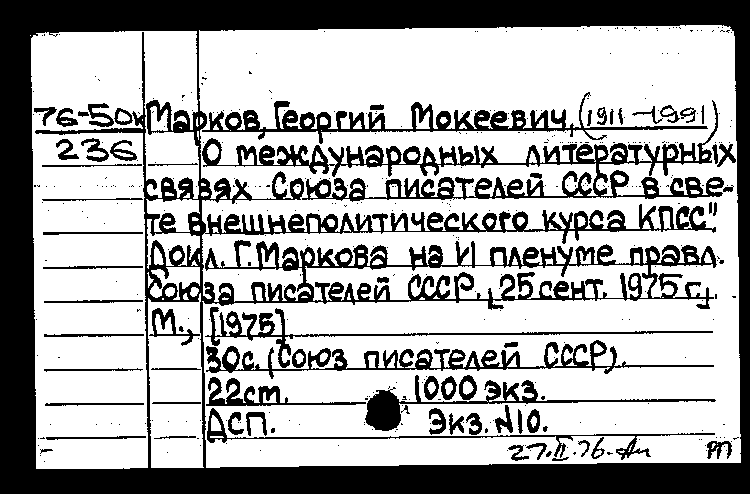 76-50к Марков, Георгий Мокеевич, (1911-1991)
236 О международных литературных
связях Союза писателей СССР в све-
те внешнеполитического курса КПСС".
Докл. Г. Маркова на II пленуме правл.
Союза писателей СССР. [25 сент. 1975 г.].
М., [1975].
30с. (Союз писателей СССР).
22см. 1000 экз.
ДСП. Экз. №10.
27.II.76.
РП